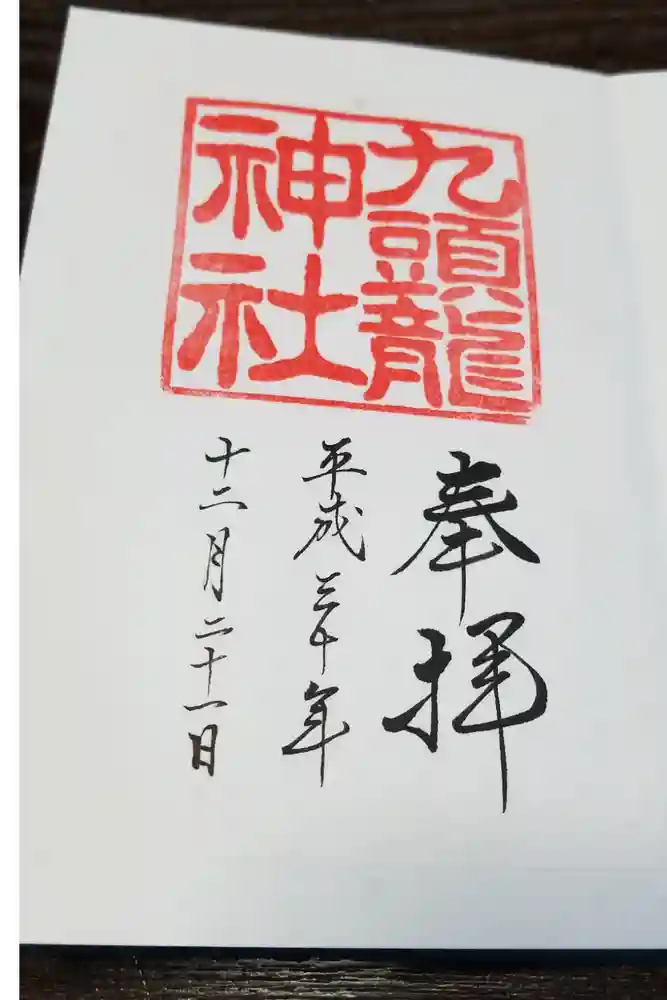 九頭龍
神社
奉拝
平成三十年
十二月二十一日